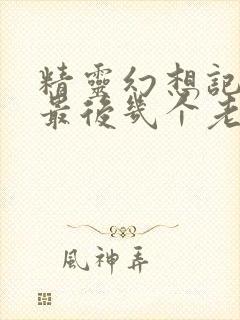 精靈幻想記
最後幾個老
風神弄